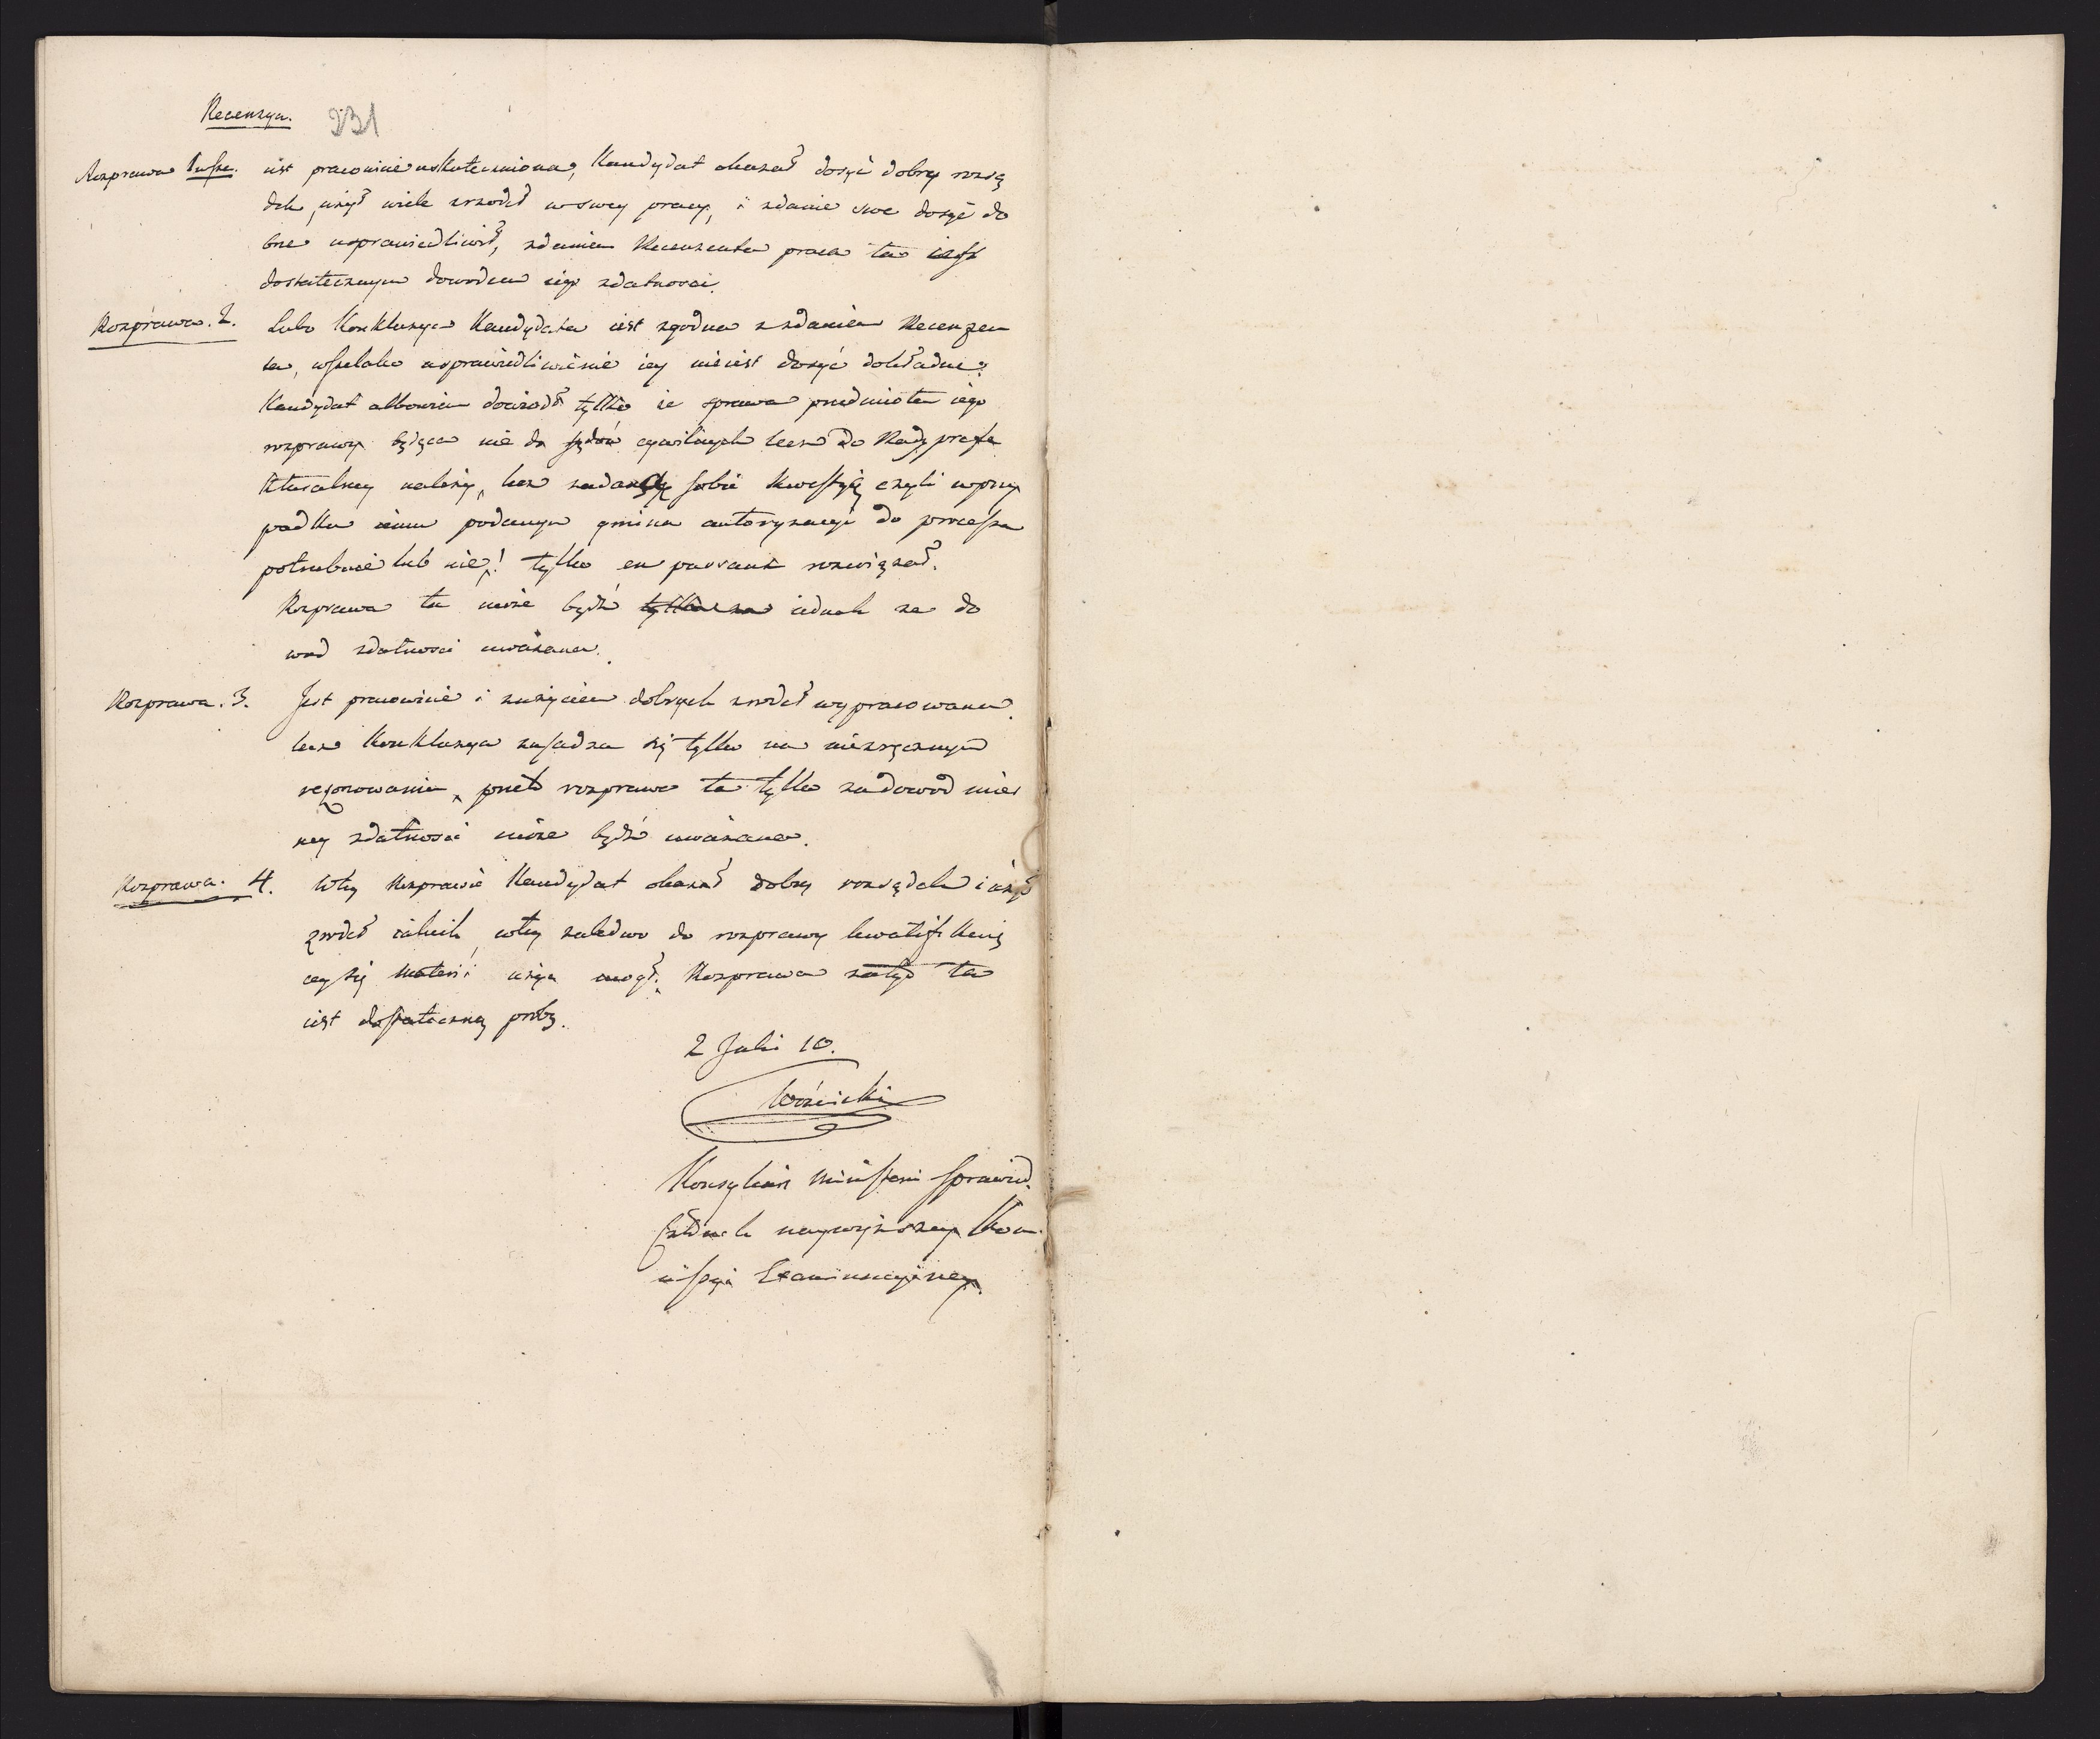 Recenzya. 231
Rozprawa 1wsza. iest pracowicie uskuteczniona, Kandydat okazał dosyć dobry rozsą
dek, użył wiele zrzodeł w swey pracy, i zdanie swe dosyć do
brze usprawiedliwił, zdaniem Recenzenta praca ta iest
dostatecznym dowodem iego zdatności.
Rozprawa. 2. Lubo Konkluzya Kandydata iest zgodna z zdaniem Recenzen
ta, wszelako usprawiedliwienie iey nie iest dosyć dokładne;
Kandydat albowiem dowiodł tylko że sprawa przedmiotem iego
rozprawy będąca nie do sądów cywilnych lecz do Rady prefe
kturalney należy, lecz zadaną sobie kwestyią czyli w przy
padku iemu podanym gmina autoryzacyi do processu
potrzebuie lub nie! tylko en passant rozwiązał.
Rozprawa ta może bydź tylko za iednak za do
wod zdatności uważana.
Rozprawa. 3. Jest pracowicie i z użyciem dobrych zrodeł wypracowana.
lecz Konkluzya zasadza się tylko na niezręcznym
rezonowaniu, przeto rozprawa ta tylko za dowod mier
ney zdatności może bydź uważana.
Rozprawa. 4. W tey Rozprawie Kandydat okazał dobry rozsądek i użył
zrodeł iakich w tey zaledwo do rozprawy kwalifikuią
cey się materii użyć mogł. Rozprawa zatym ta
iest dostateczną probą.
2 Julii 10.
Woźnicki
Konsyliarz Ministerii Sprawied.
Członek naywyższey Kom
missyi Examinacyiney.